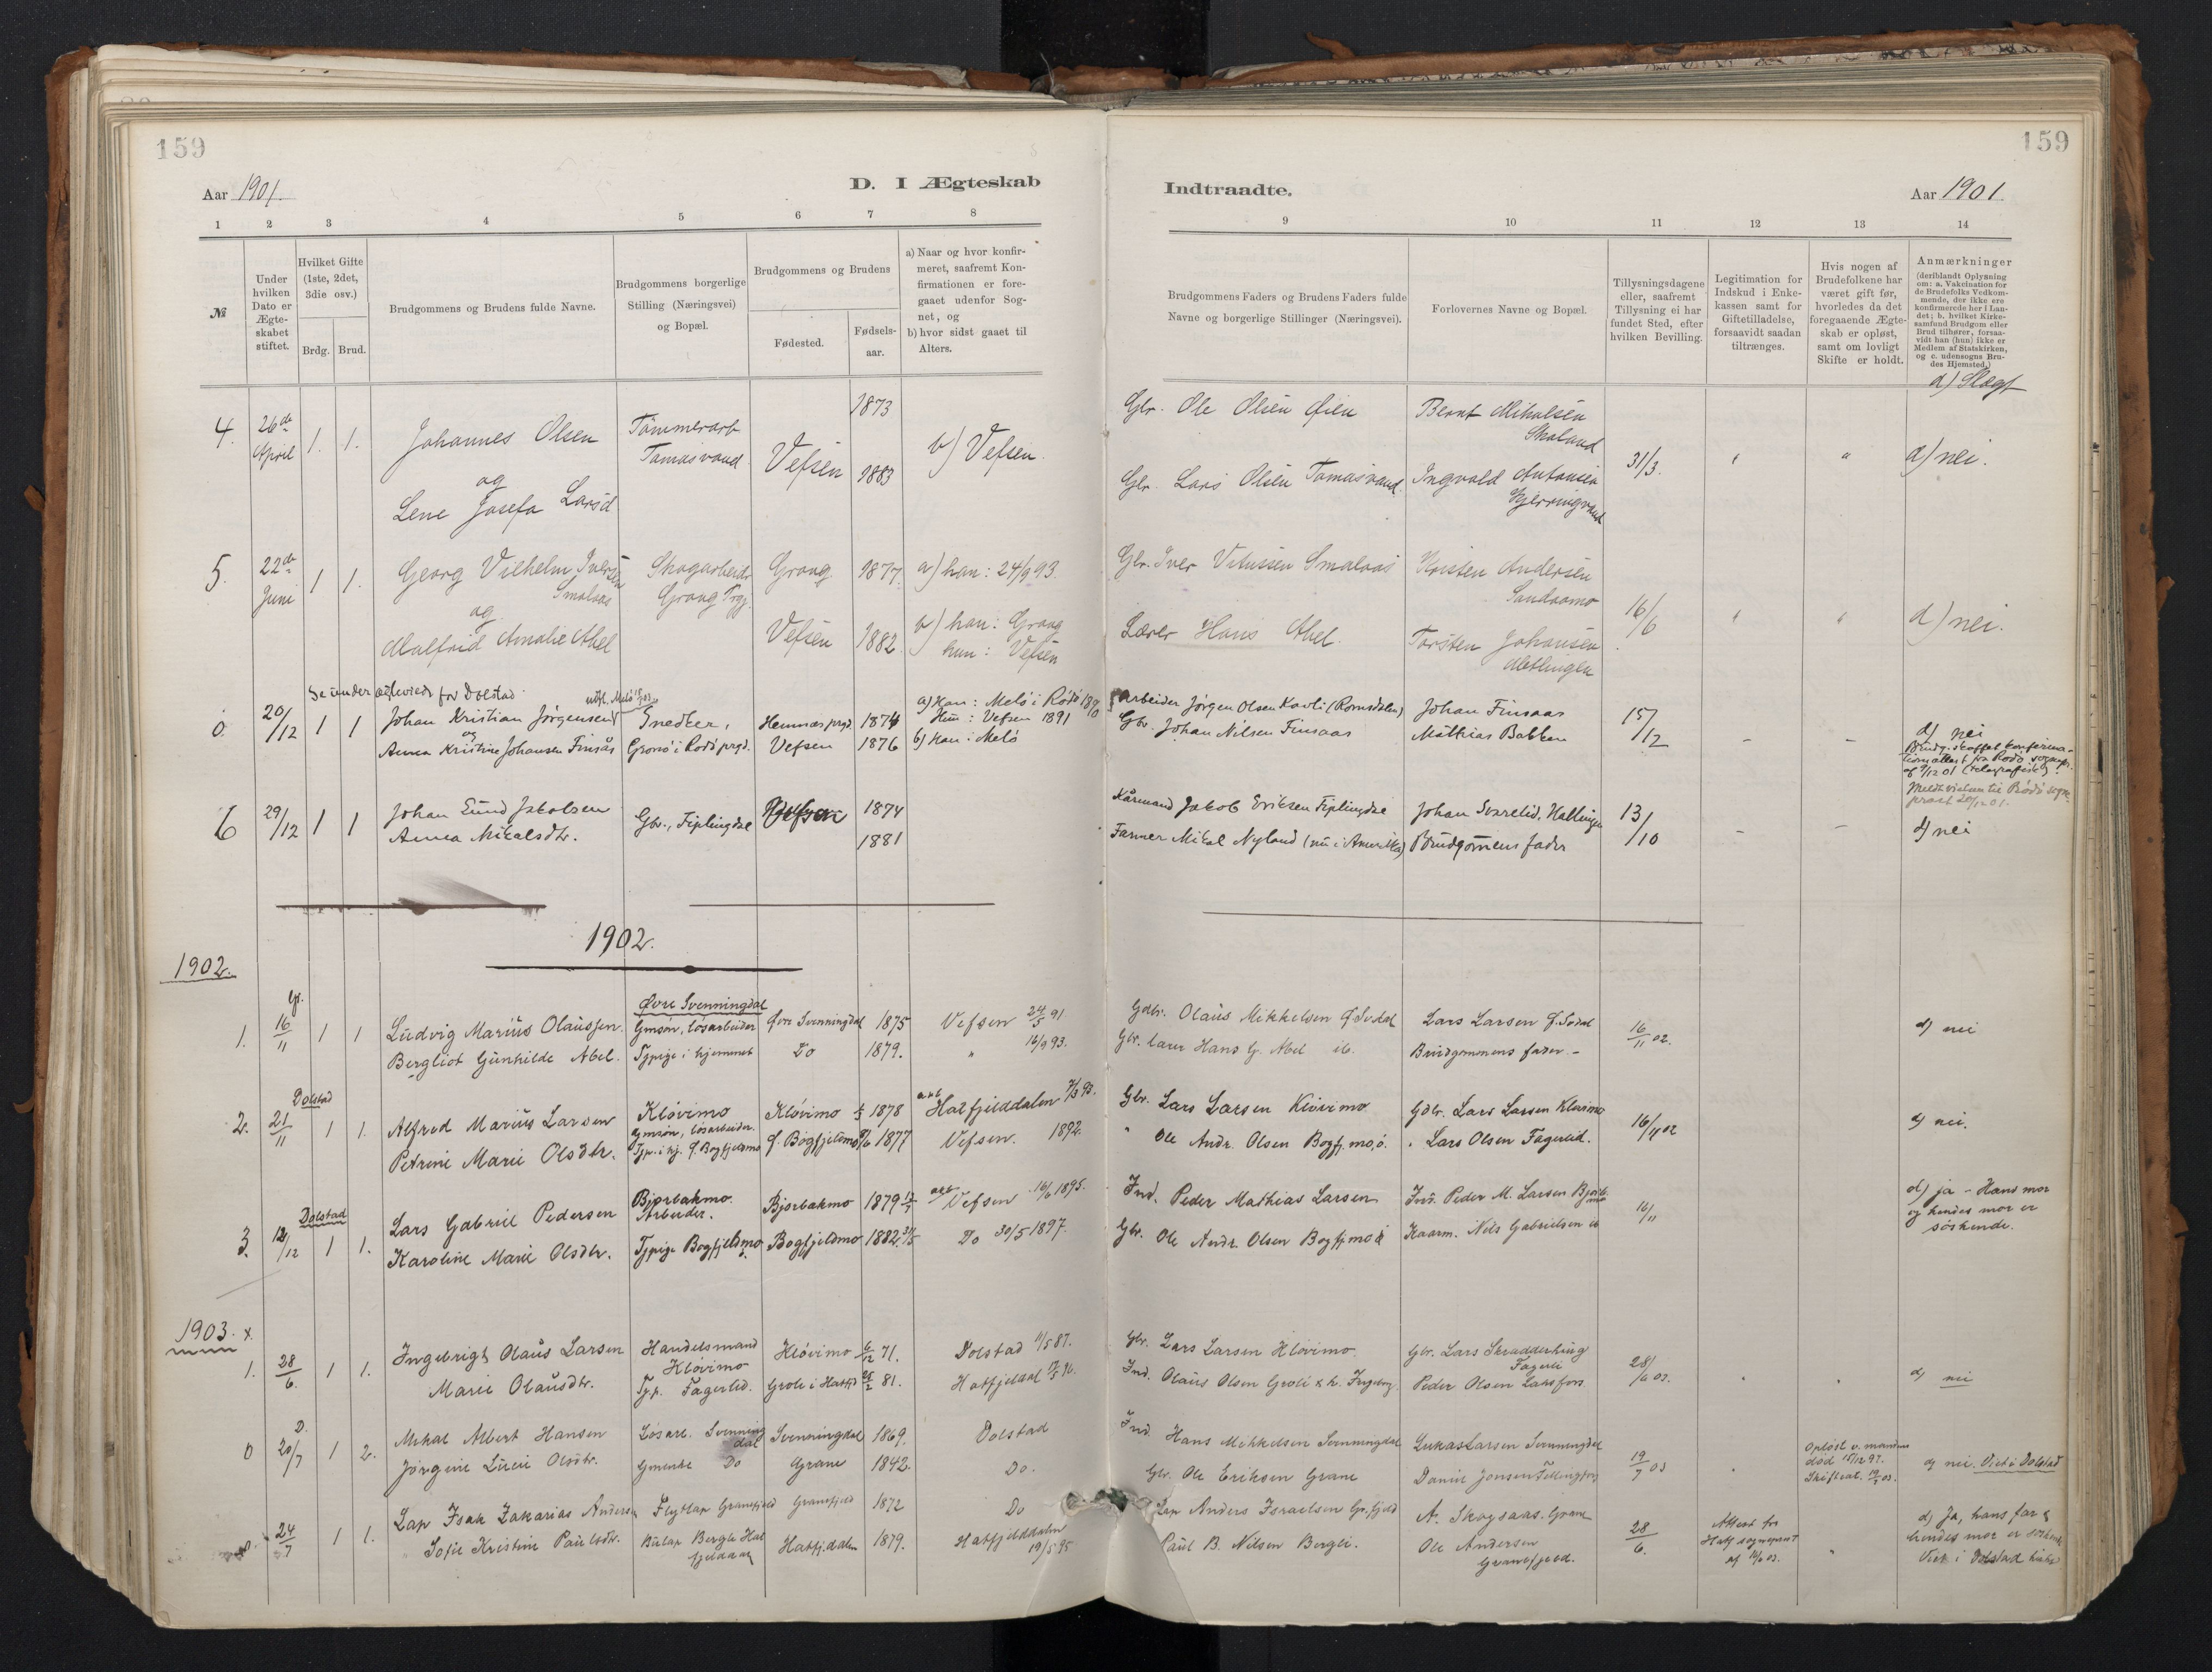 159
159
Aar 1901.
D. I Ægteskab
Indtraadte.
Aar 1901.
1 2 3 4 5 6 7 8
9 10 11 12 13 14
№
Under hvilken Dato er Ægte-skabet stiftet.
Hvilket Gifte (1ste, 2det, 3die osv.)
Brdg. Brud.
Brudgommens og Brudens fulde Navne.
Brudgommens borgerlige Stilling (Næringsvei) og Bopæl.
Brudgommens og Brudens
Fødested.
Fødsels-aar.
a) Naar og hvor konfir-
meret, saafremt Kon-
firmationen er fore-
gaaet udenfor Sog-
net, og
b) hvor sidst gaaet til
Alters.
Brudgommens Faders og Brudens Faders fulde
Navne og borgerlige Stillinger (Næringsvei).
Forlovernes Navne og Bopæl.
Tillysningsdagene
eller, saafremt
Tillysning ei har
fundet Sted, efter
hvilken Bevilling.
Legitimation for
Indskud i Enke-
kassen samt for
Giftetilladelse,
forsaavidt saadan
tiltrænges.
Hvis nogen af
Brudefolkene har
været gift før,
hvorledes da det
foregaaende Ægte-
skab er opløst,
samt om lovligt
Skifte er holdt.
Anmærkninger
(deriblandt Oplysning
om: a. Vakcination for
de Brudefolks Vedkom-
mende, der ikke ere
konfirmerede her i Lan-
det; b. hvilket Kirke-
samfund Brudgom eller
Brud tilhører, forsaa-
vidt han (hun) ikke er
Medlem af Statskirken,
og c. udensogns Bru-
des Hjemsted.)
d) Slægt
4. 26de April 1. 1. Johannes Olsen Tømmerarb Tomasvand Vefsen 1873 b) Vefsen. Gbr. Ole Olsen Øien Bernt Mikalsen
og Lene Josefa Larsd 1883 Gbr. Lars Olsen Tomasvand. Ingvald Antonsen 31/3. " " d) nei.
5. 22de Juni 1 1. Georg Vilhelm Iversen Smalaas Skogarbeider Grong Prgj. Grong 1877. a) han: 24/9 93. Gbr. Iver Vitussen Smalaas Kristen Andersen
og Malfrid Amalie Abel Vefsen 1882. b) han: Grong hun: Vefsen Lærer Hans Abel. Torsten Johansen 16/6 " " d) nei.
Se under ægteviede fra Dolstad
0. 20/12 1 1 Johan Kristian Jørgensen Snedker, Hemnæs prgd. 1874 a) Han: Melø i Rødø 1890 Arbeider Jørgen Olsen Kavli (Romsdalen) Johan Finsaas
og Hun: Vefsen 1891
Anna Kristine Johansen Finsås Grønø i Rødø prgd. Vefsen 1876 b) Han: Melø Gbr. Johan Nilsen Finsaas Mathias Bakken 15/12 - - d) nei
6 29/12 1 1 Johan Eund Jakobsen Gbr., Fiplingdal Vefsen 1874 Kårmand Jakob Eriksen Fiplingdal Johan Svarelid, Hallingen 13/10 - - d) nei
Anna Mikalsdtr. 1881 Farmer Mikal Nyland (nu i Amerika) Brudgomens fader
1902.
1902.
1. Gr. 16/11 1 1 Ludvig Marius Olaussen. Øvre Svenningdal Gmsøn, løsarbeider Øvre Svenningdal 1875 Vefsen 24/5 91. Gdbr. Olaus Mikkelsen Ø. Svdal Lars Larsen Ø. Svdal 16/11 02. d) nei
Bergliot Gunhilde Abel. Tjpige i hjemmet Do 1879. " 16/9 93. Gbr. lærer Hans G. Abel ib. Brudgommens fader. -
2. Dolstad 21/11 1 1. Alfred Marius Larsen Kløvimo Gmsøn, løsarbeider. Kløvimo 1878 Hatfjelddalen Gbr. Lars Larsen Kløvimo Gdbr. Lars Larsen Kløvimo d) nei.
Petrine Marie Olsdtr. Tjp. i hj. Ø. Bogfjeldmo Ø. Bogfjeldmo 1877 Vefsen. 1892. " Ole Andr. Olsen Bogfj.mo, ø. " Lars Olsen Fagerlid.
3. Dolstad 12/12 1 1. Lars Gabriel Pedersen Bjørbakmo. Arbeider. Bjørbakmo 1879 Vefsen 16/6 1895. Ind. Peder Mathias Larsen Ind. Peder M. Larsen Bjørb. mo 16/11 d) ja - Hans mor
og hendes mor er
søskende.
Karoline Marie Olsdtr. Tjpige Bogfjeldmo Bogfjeldmo 1882 31/5 Do 30/5 1897. Gbr. Ole Andr. Olsen Bogfj.mo ø Kaarm. Nils Gabrielsen ib
1903. x.
1. 28/6. 1 1. Ingebrigt Olaus Larsen Handelsmand Kløvimo Kløvimo 6/12 71. Dolstad 11/5 87. Gbr. Lars Larsen Kløvimo. Gbr. Lars Skrædderhing Fagerli 28/6 03. " " d) nei
Marie Olausdtr. Tjp. Fagerlid. Groli i Hatfjd 81. Hatfjeldal Ind. Olaus Olsen Groli & h. Ingeborg. Peder Olsen Laksfors
0 D. 20/7 1 2. Mikal Albert Hansen Løsarb. Svenningdal Svenningdal 1869. Dolstad Ind. Hans Mikkelsen Svenningdal Lukas Larsen Svenningdal 19/7 03 " Opløst v. mandens
død 15/12 97.
Skifteat. 03. d) nei. Viet i Dolstad
Jørgine Lucie Olsdtr. Gmenke Do Grane 1842. Do. Gbr. Ole Eriksen Grane Daniel Jonsen
24/7 1 1. Lap Isak Zakarias Anders. Flytlap Granefjeld Granefjeld 1872 Do Lap Anders Israelsen Gr.fjeld A. Skogsaas. Grane 28/6. Attest fra
Hatfj sogneprest " d) Ja, hans far &
hendes mor er søskende
Viet i Dolstad kirke
" Sofie Kristine Paulsdtr. Bulap Bergli Hatfjelddalen Hatfj.dalen 1879. Hatfjelddalen 19/5 95 Paul B. Nilsen Bergli. Ole Andersen Granefjeld.